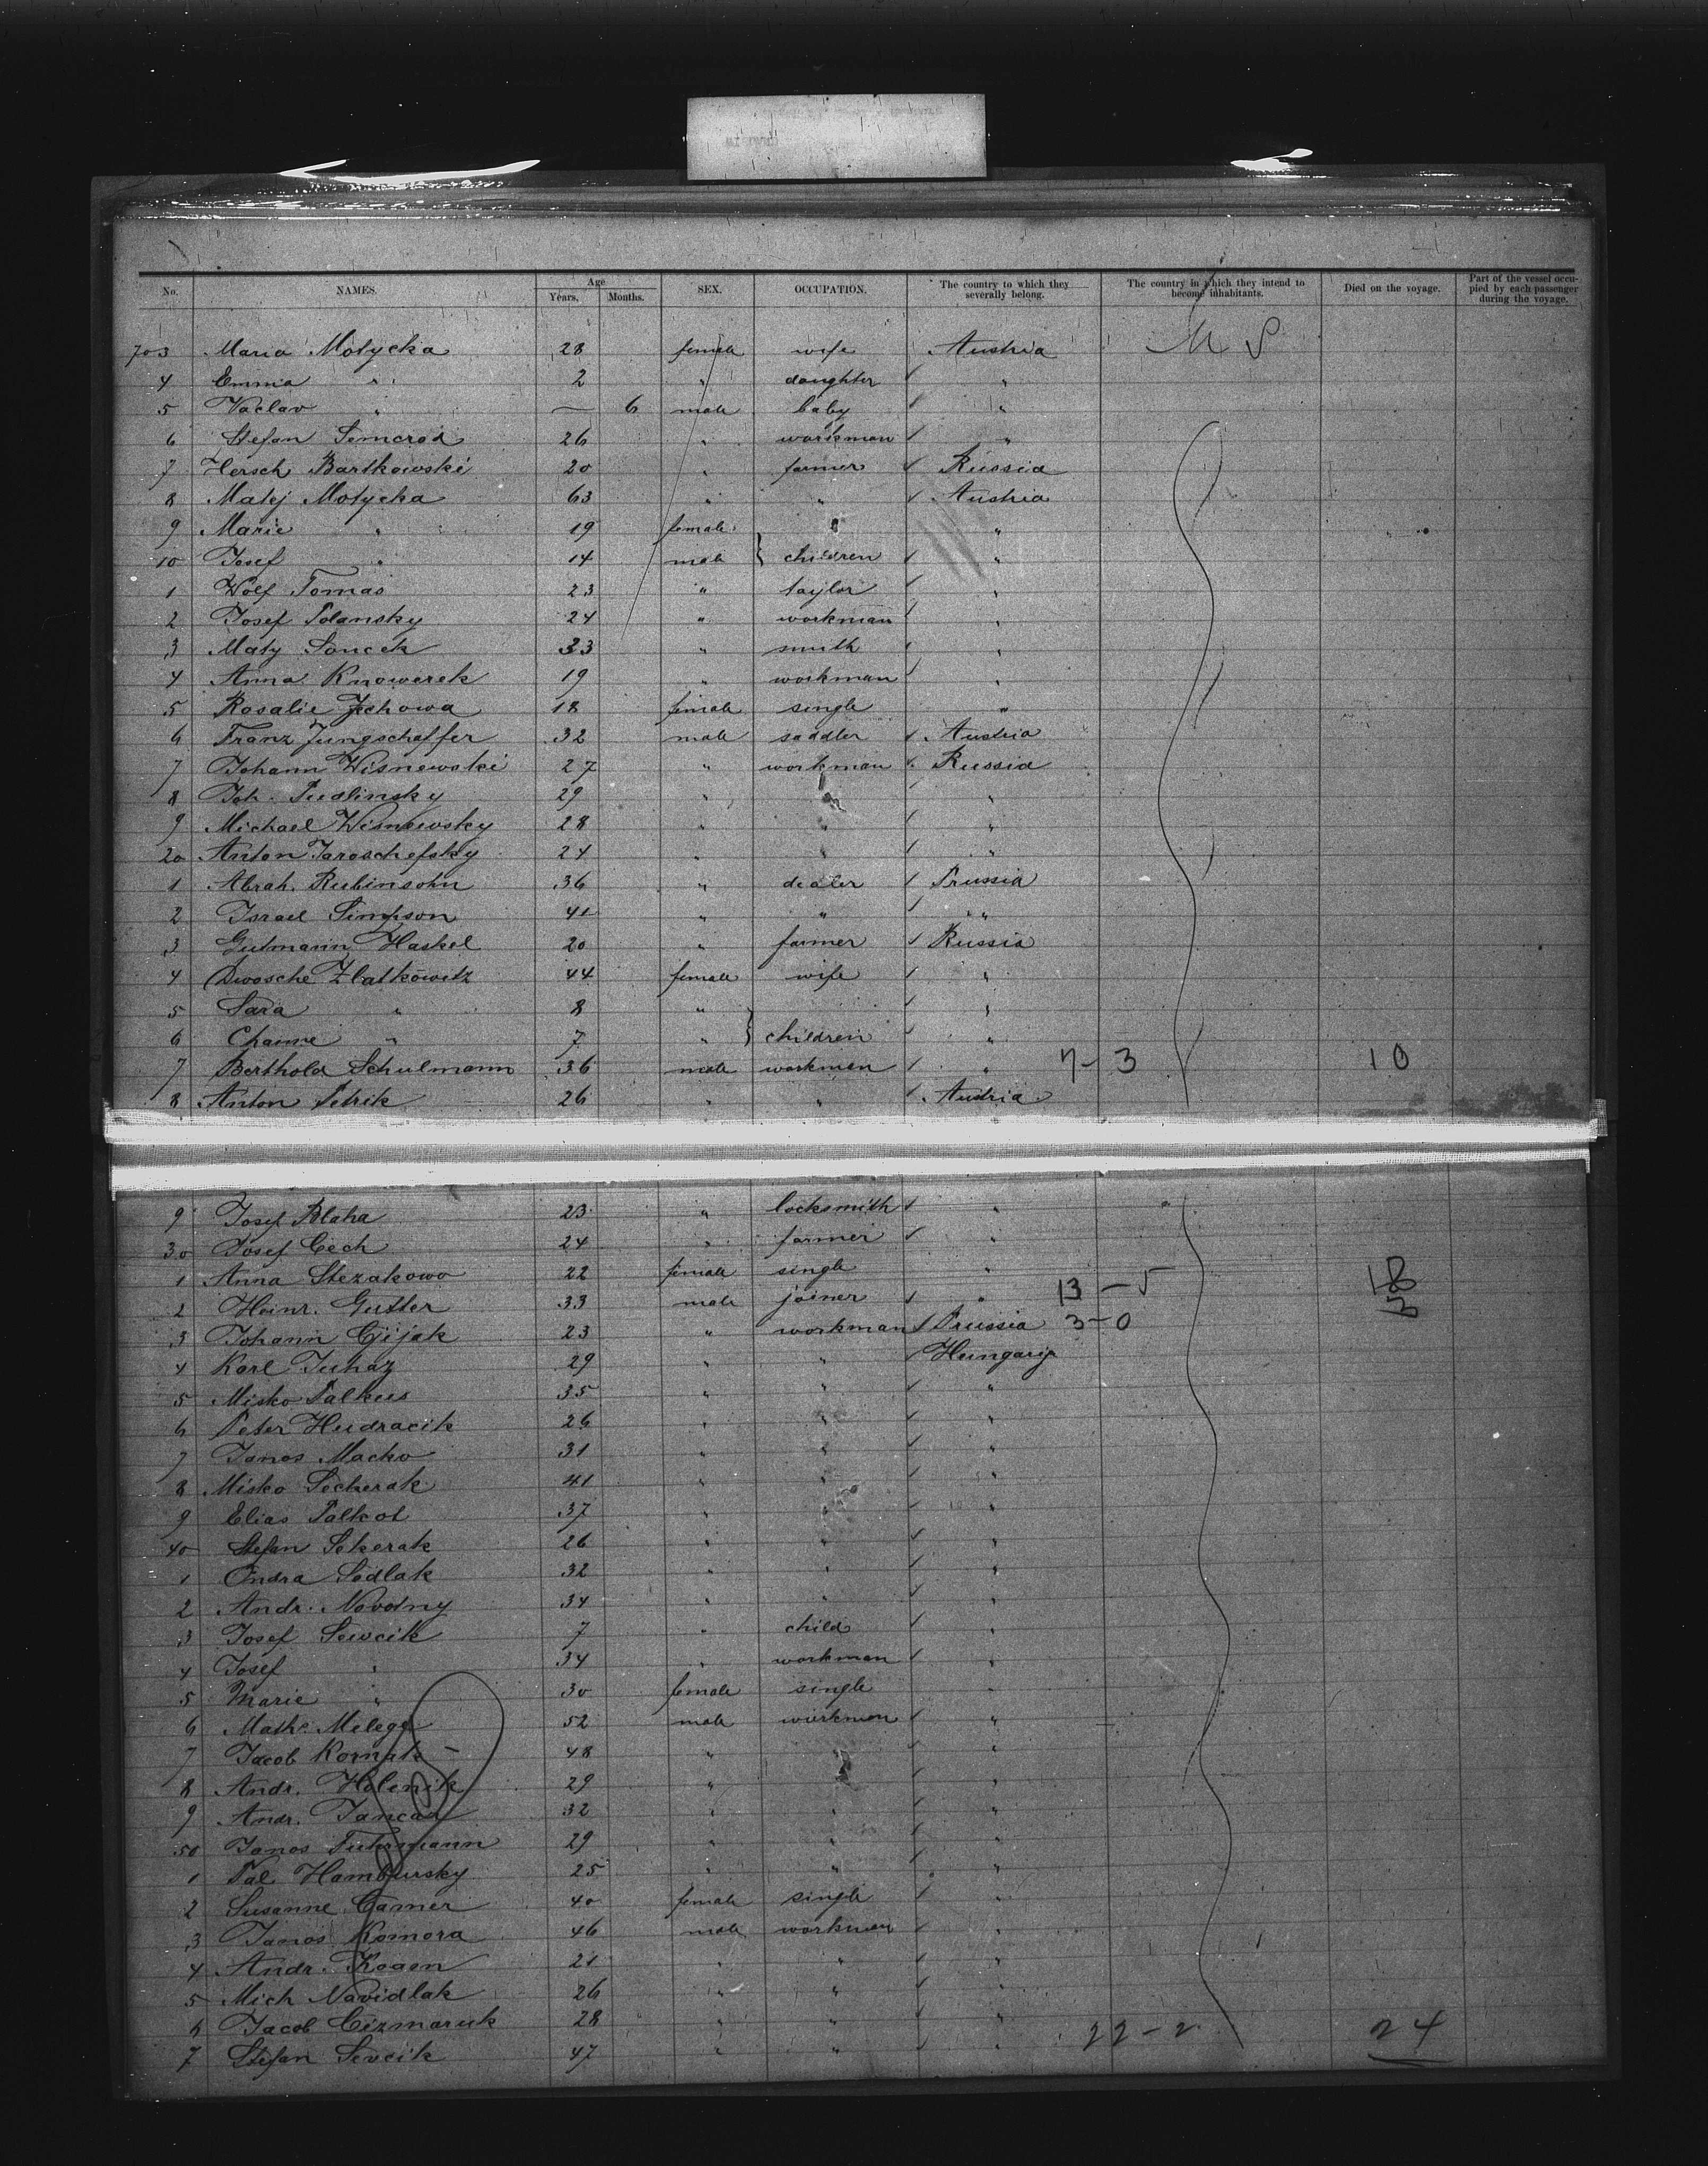 No. NAMES. Age Years. Months. SEX. OCCUPATION. The country to which they severally belong. The country in which they intend to become inhabitants. Died on the voyage. Part of the vessel occupied by each passenger during the voyage.
703 Maria Motycka 28 female wife Austria
4 Emma " 2 " daughter "
5 Vaclav " — 6 male baby "
6 Stefan 26 " workman "
7 Hersch Bartkowski 20 " farmer Russia
8 Matej Motycka 63 " " Austria
9 Marie " 19 female "
10 Josef " 14 male } children "
1 Wolf Tomas 23 " taylor "
2 Josef Polansky 24 " workman "
3 Maty Soucek 33 " smith "
4 Anna Knowerek 19 " workman "
5 Rosalie Jechowa 18 female single "
6 Franz Jungschaffer 32 male saddler Austria
7 Johann Wisnewski 27 " workman Russia
8 Joh. Pudlinsky 29 " " "
9 Michael Wisnewsky 28 " " "
20 Anton Jaroschefsky 24 " " "
1 Abrah. Rubinsohn 36 " dealer Prussia
2 Israel Simpson 41 " " "
3 Gutmann Haskel 20 " farmer Russia
4 Dwosche Zlatkowitz 44 female wife "
5 Sara " 8 " "
6 Channe " 7 " } children "
7 Berthold Schulmann 36 male workman " 7-3 10
8 Anton Petrik 26 " " Austria
9 Josef Blaha 23 " locksmith "
30 Josef Cech 24 " farmer "
1 Anna Stezakowo 22 female single "
2 Heinr. Gutter 33 male joiner " 13-5 18
3 Johann Gijak 23 " workman Prussia 3-0 3
4 Karl Juhaz 29 " " Hungary
5 Misko Palkus 35 " " "
6 Peter Hudracik 26 " " "
7 Janos Macko 31 " " "
8 Misko Secherak 41 " " "
9 Elias Palkot 37 " " "
40 Stefan Sekerak 26 " " "
1 Ondra Sedlak 32 " " "
2 Andr. Novotny 34 " " "
3 Josef Sewcik 7 " child "
4 Josef " 34 " workman "
5 Marie " 30 female single "
6 Math. 52 male workman "
7 Jacob Kornak 48 " " "
8 Andr. Holenik 29 " " "
9 Andr. 32 " " "
50 Janos Fuhrmann 29 " " "
1 Pal Hambursky 25 " " "
2 Susanne Camer 40 female single "
3 Janos Komora 46 male workman "
4 Andr. 21 " " "
5 Mich Navidlak 26 " " "
6 Jacob Cizmaruk 28 " " "
7 Stefan Sevcik 47 " " " 22-2 24